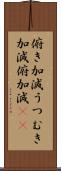 俯き加減うつむき
加減俯加減